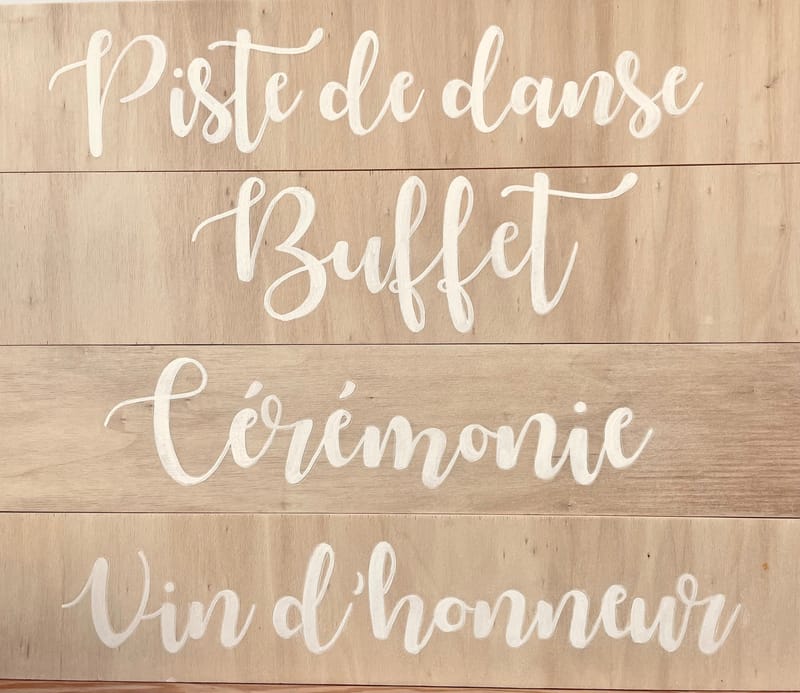 Piste de danse
Buffet
Cérémonie
Vin d'honneur